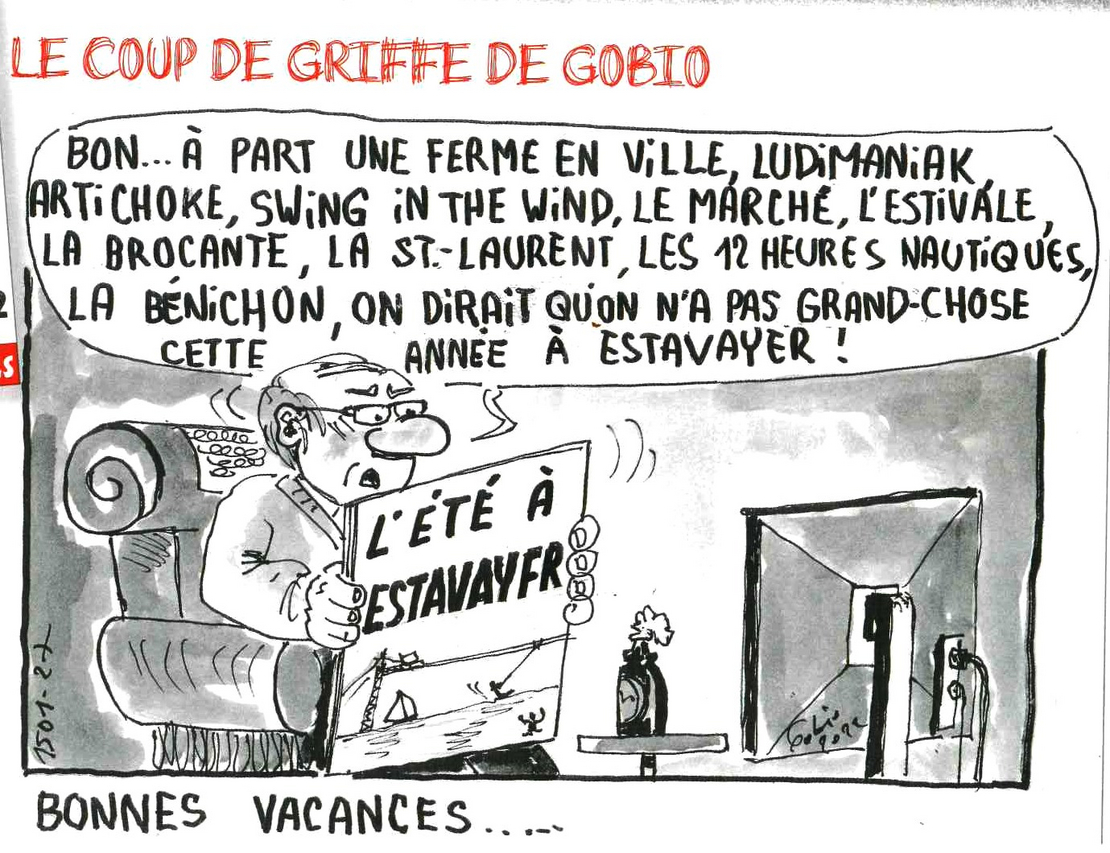 LE COUP DE GRIFFE DE GOBIO
BON... À PART UNE FERME EN ViLLE, LUDiMANiAK,
ARTiCHOKE, SWiNG iN THE WiND, LE MARCHÉ, L'ESTiVALE,
LA BROCANTE, LA ST.-LAURENT, LES 12 HEURES NAUTiQUES,
LA BÉNiCHON, ON DiRAiT QU'ON N'A PAS GRAND-CHOSE
CETTE ANNÉE À ESTAVAYER !
L'ÉTÉ À
ESTAVAYER
1501-27
Gobio
2022
BONNES VACANCES.....